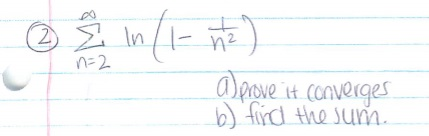 ② ∞ Σ n=2 ln(1 - 1/n²)
a) prove it converges
b) find the sum.